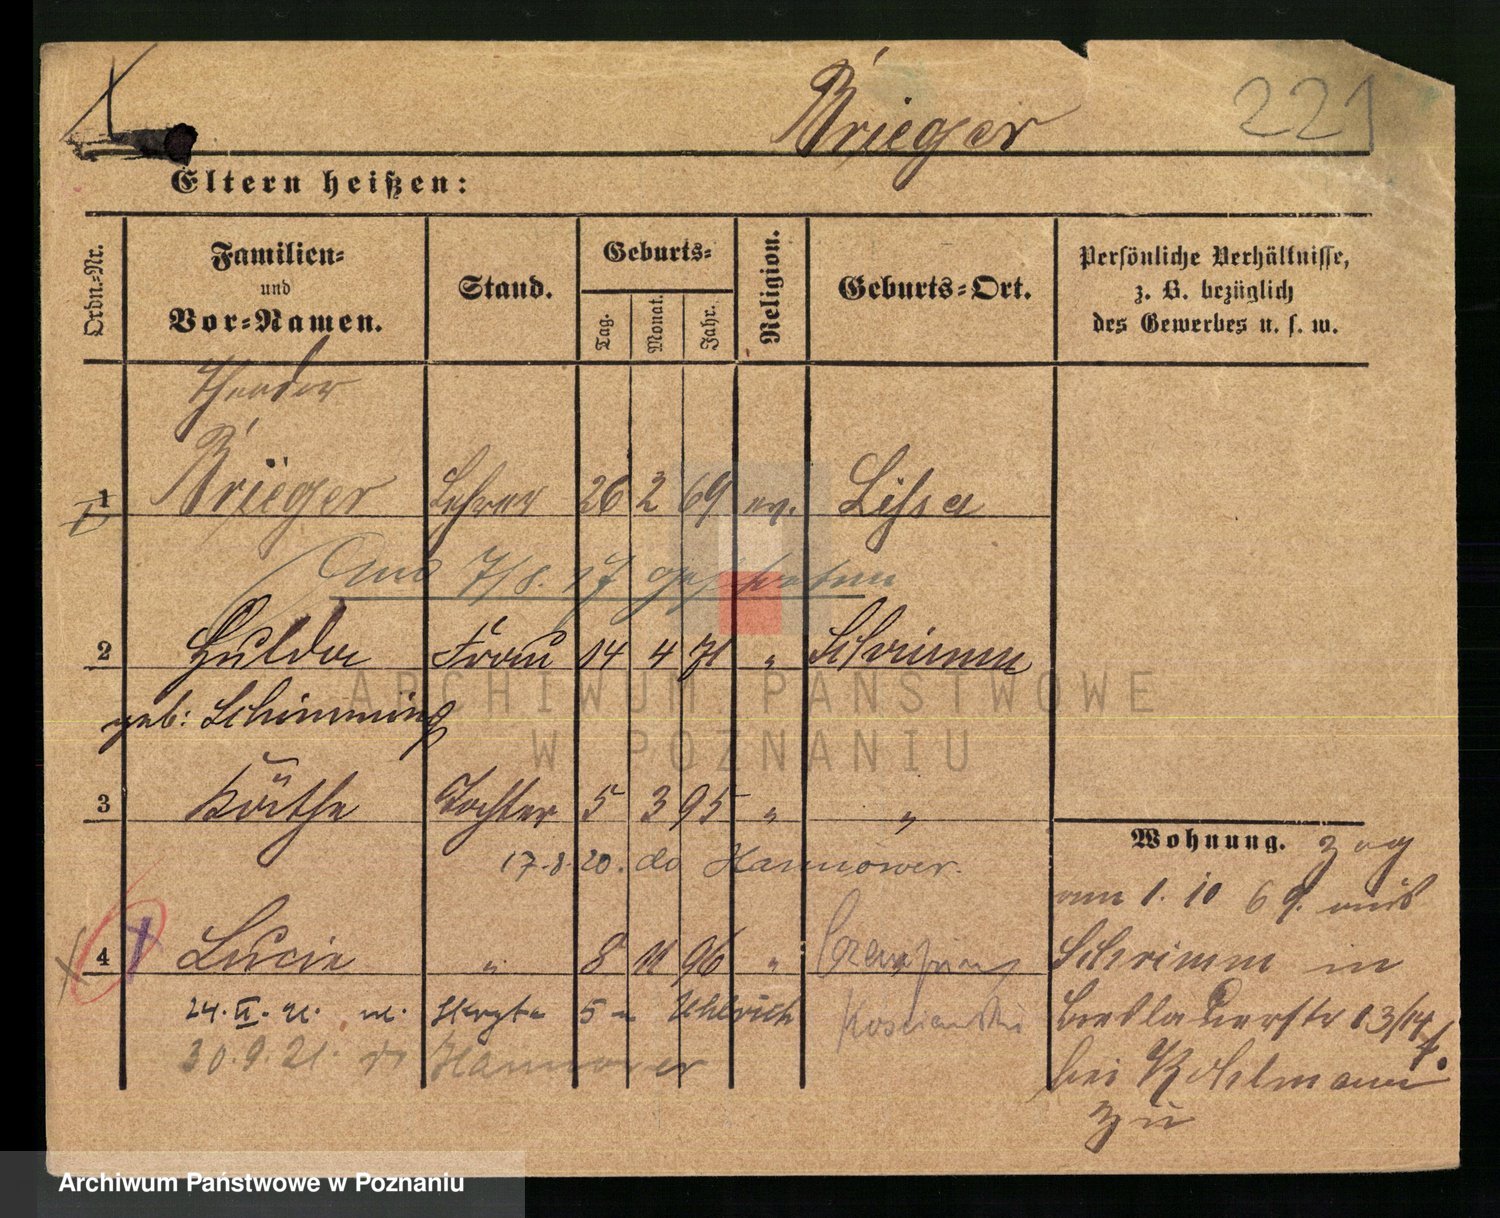 Brieger 221
Eltern heißen:
Ordn.-Nr. Familien- und Vor-Namen. Stand. Geburts- Tag. Monat. Jahr. Religion. Geburts-Ort. Persönliche Verhältnisse, z. B. bezüglich des Gewerbes u. s. w.
Theodor
1 Brieger Lehrer 26 2 69 ev. Lissa
7/8. 17 gestorben
2 Hulda Frau 14 4 71 " Schrimm
geb: Schimming
3 Käthe Tochter 5 3 95 " "
17.8.20. do Hannower.
4 Lucie " 8 11 96 "
24. II. 21. 5 Uhlrich
30.9.21. Hannover
Wohnung. zog
am 1. 10 69. aus
Schrimm in
13/14
bei
zu
ARCHIWUM PAŃSTWOWE
W POZNANIU
Archiwum Państwowe w Poznaniu